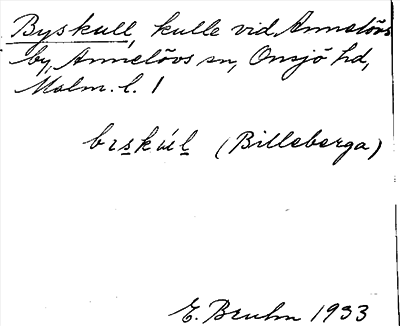 Byskull, kulle vid Annelövs
by, Annelövs sn, Onsjö hd,
Malm. l. 1
bɪskúl (Billeberga)
E. Bruhn 1933